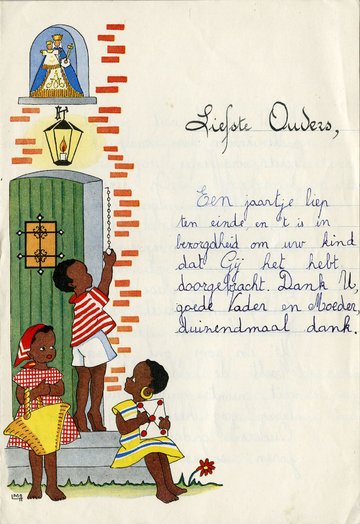 Liefste Ouders,
Een jaartje liep
ten einde en 't is in
bezorgdheid om uw kind
dat Gij het hebt
doorgebracht. Dank U,
goede Vader en Moeder,
duizendmaal dank.